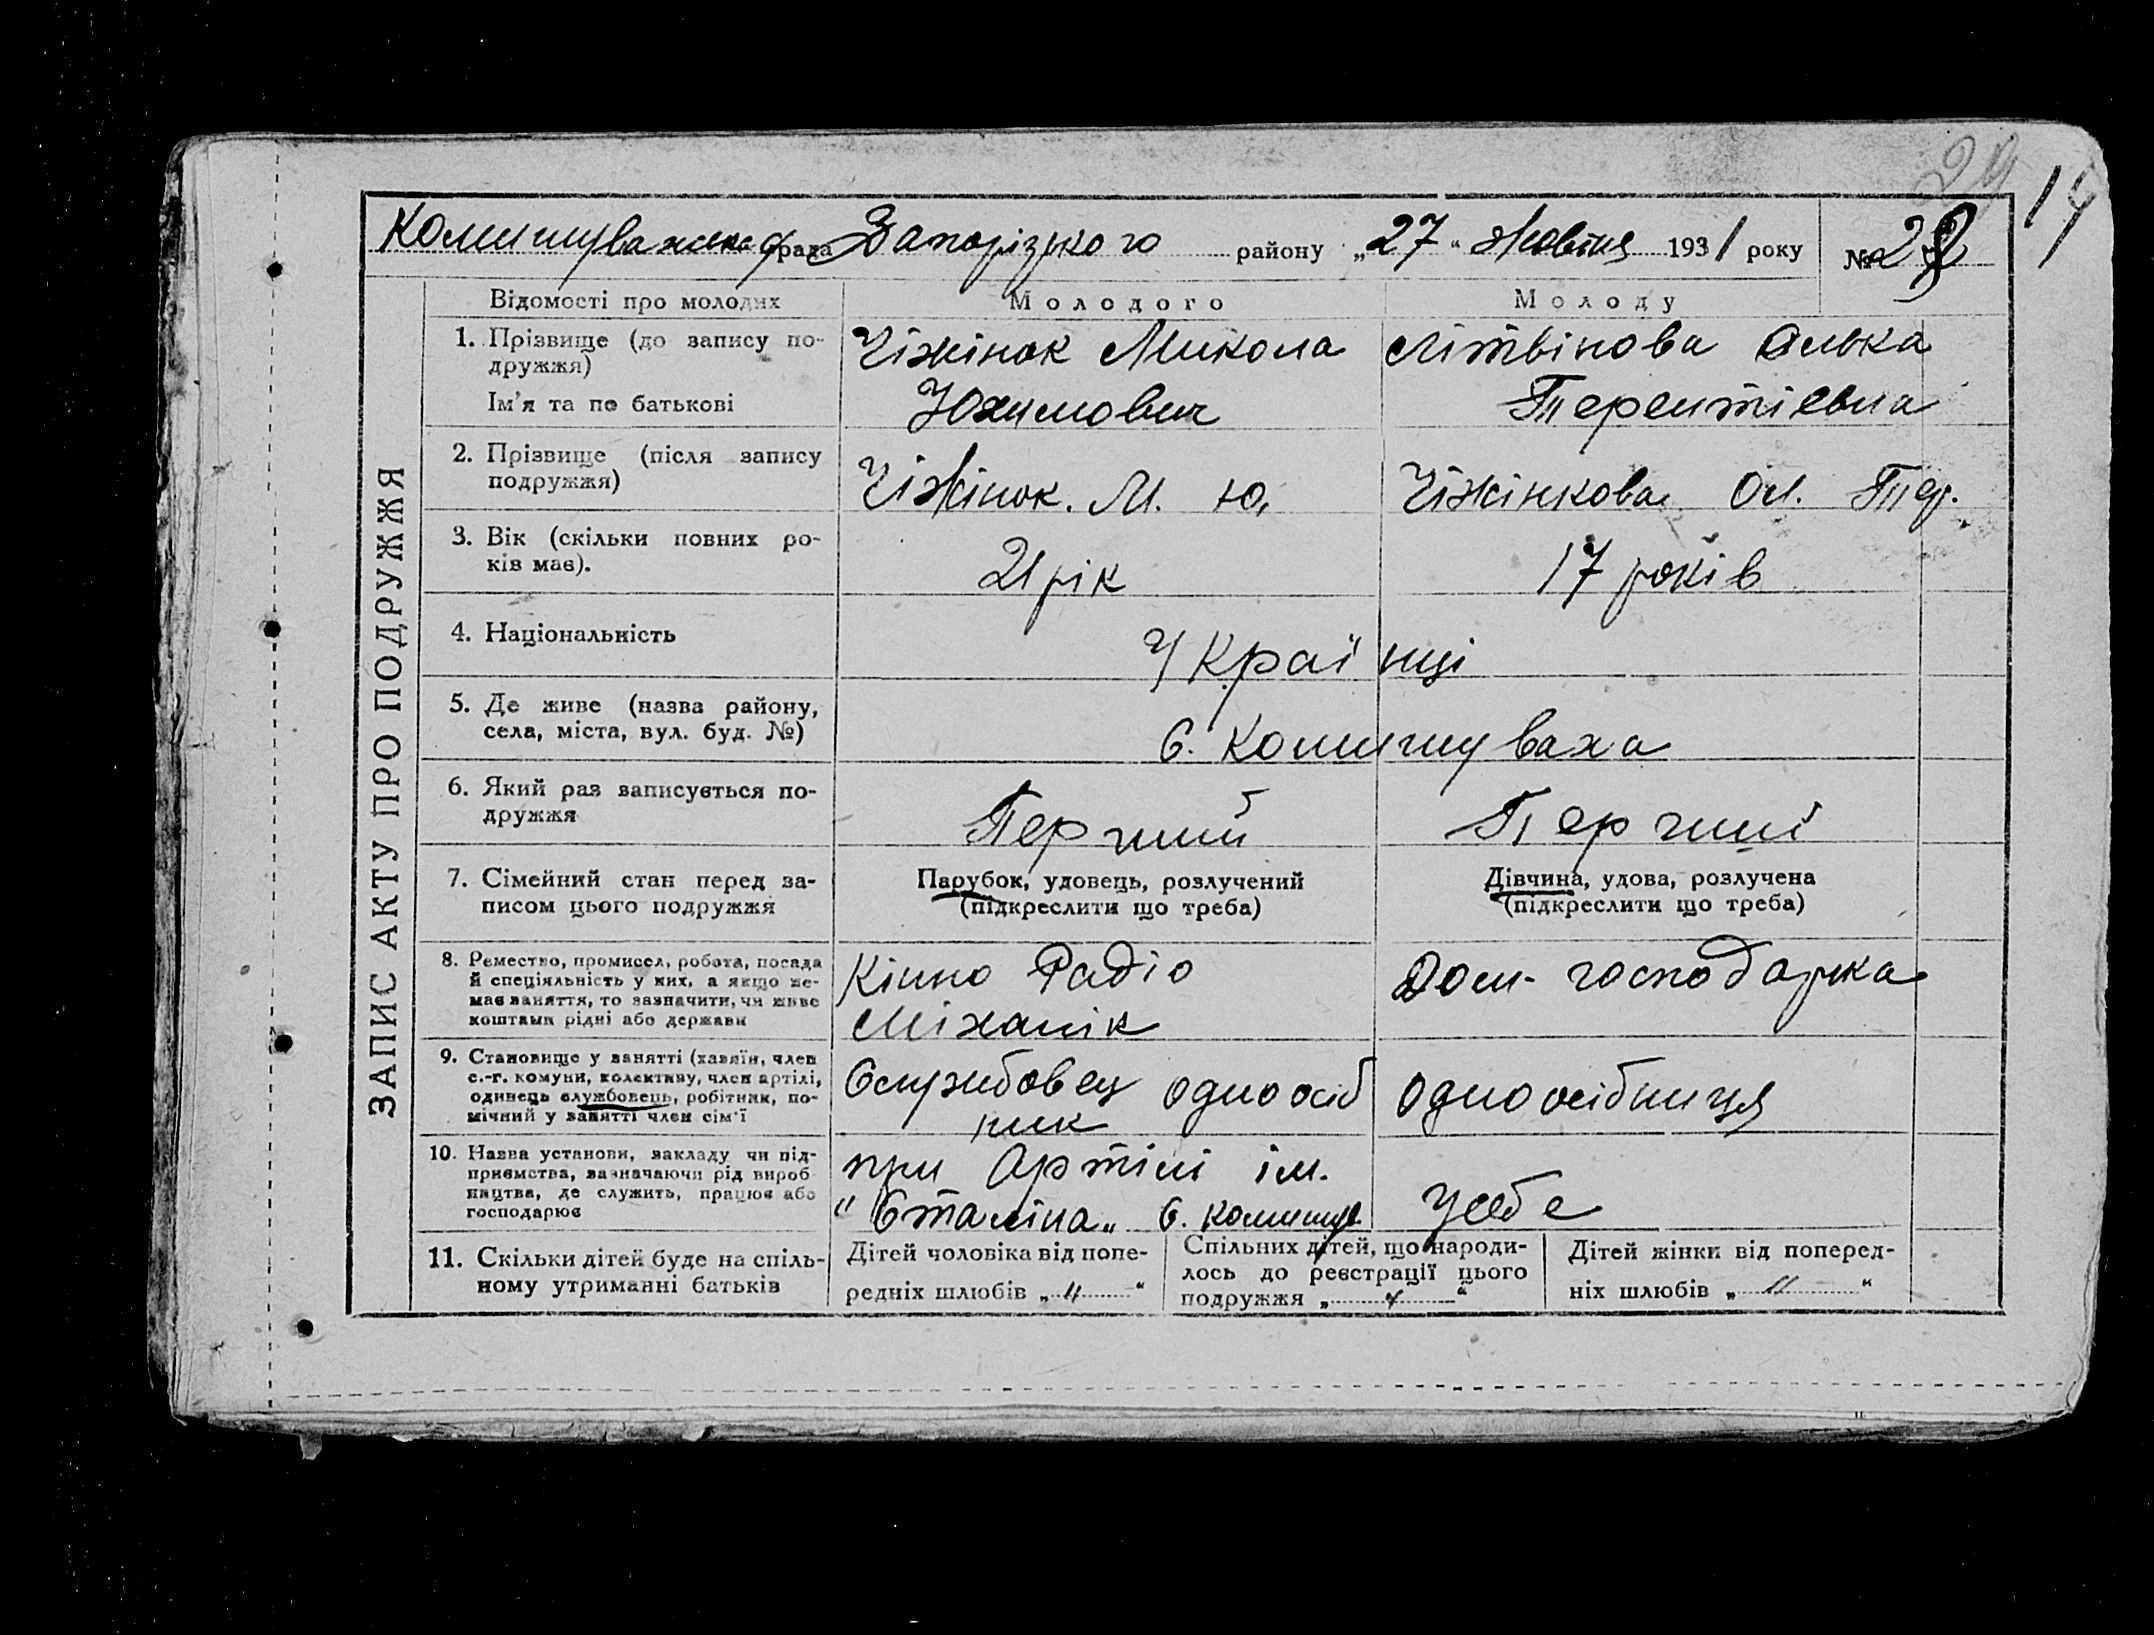 29 19
Комишуваська с/рада Запорізького району „27“ Жовтня 1931 року №
Відомості про молодих Молодого Молоду
ЗАПИС АКТУ ПРО ПОДРУЖЖЯ
1. Прізвище (до запису по- Чіжінок Микола Літвінова Олька
дружжя)
Ім’я та по батькові Юхимович Терентіевна
2. Прізвище (після запису Чіжінок. М. Ю. Чіжінкова Ол. Тер.
подружжя)
3. Вік (скільки повних ро- 21 рік 17 років
ків має).
4. Національність Українці
5. Де живе (назва району, С. Комишуваха
села, міста, вул. буд. №)
6. Який раз записується по- Перчий Перчий
дружжя
7. Сімейний стан перед за- Парубок, удовець, розлучений Дівчина, удова, розлучена
писом цього подружжя (підкреслити що треба) (підкреслити що треба)
8. Ремество, промисел, робота, посада Кінно Радіо Дом- господарка
й спеціяльність у них, а якщо не-
має заняття, то зазначити, чи живе Міханік
коштами рідні або держави
9. Становище у занятті (хазяїн, член Службовец одноосіб одноосібниця
с.-г. комуни, колективу, член артілі,
одинець службовець, робітник, по- ник
мічний у занятті член сім’ї
10. Назва установи, закладу чи під- при Артілі ім. усебе
приємства, зазначаючи рід вироб-
ництва, де служить, працює або "Сталіна„ С. Комишув.
господарює
11. Скільки дітей буде на спіль- Дітей чоловіка від попе- Спільних дітей, що народи- Дітей жінки від поперед-
ному утриманні батьків редніх шлюбів „ “ лось до реєстрації цього ніх шлюбів „ “
подружжя „ “